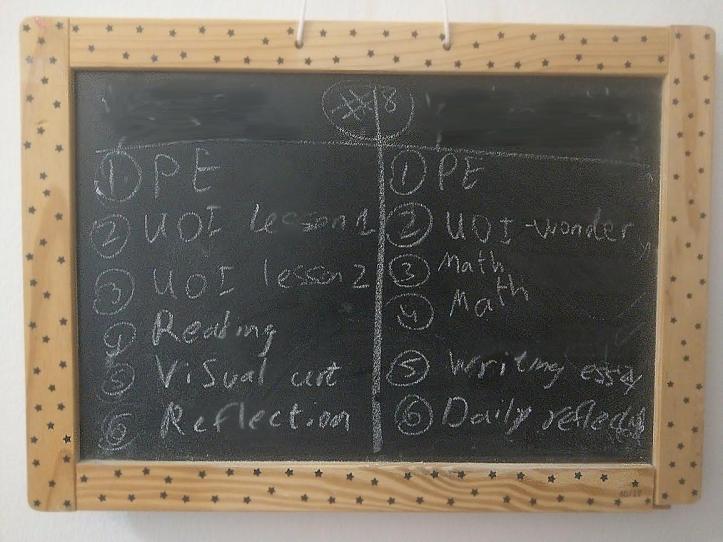 8
① PE
② UOI Lesson 1
③ UOI lesson 2
④ Reading
⑤ Visual art
⑥ Reflection
① PE
② UOI-wonder
③ Math
④ Math
⑤ Writing essay
⑥ Daily